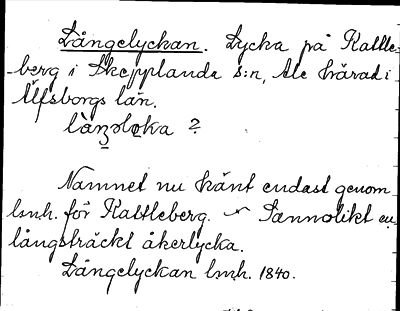 Långelyckan. Lycka på Kattle-
berg i Skepplanda s:n, Ale härad i
Älfsborgs län.
?
Namnet nu känt endast genom
lmh. för Kattleberg. – Sannolikt en
långsträckt åkerlycka.
Långelyckan lmh. 1840.